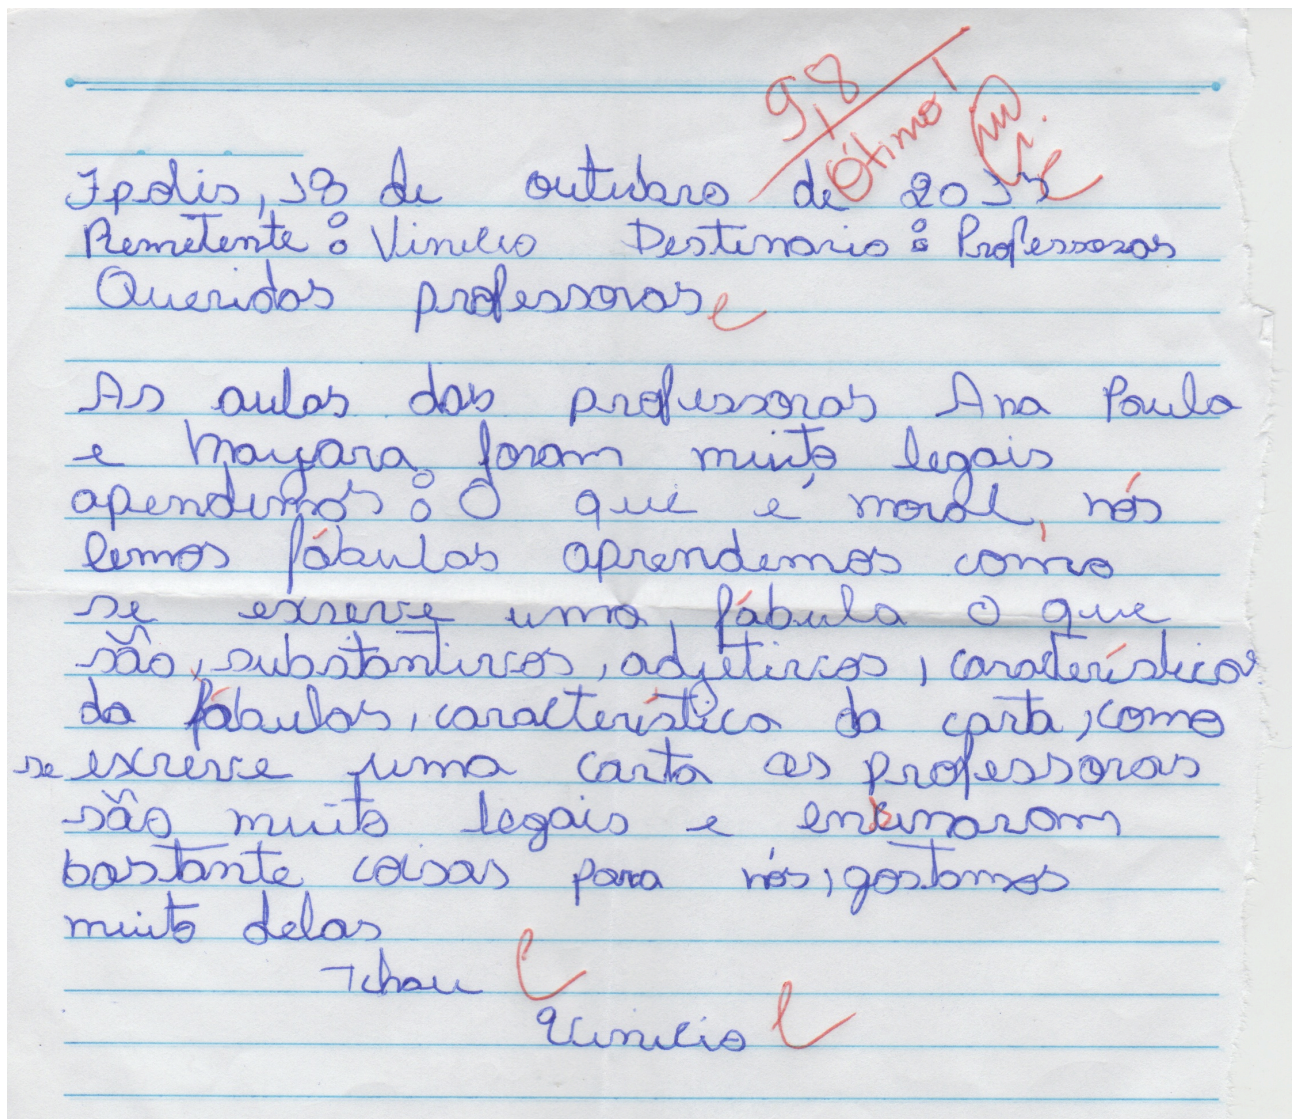 9,8
Ótimo!
Ipolis, 18 de outubro de
Remetente: Vinicio Destinario: Professoras
Queridas professoras
As aulas das professoras Ana Paula
e Mayara foram muito legais
apendemos: O que é moral, nós
lemos fábulas aprendemos como
se exreve uma fábula O que
são, substantivos, adjetivos, caraterísticas
da fábulas, característica da carta, como
se exreve uma carta as professoras
são muito legais e ensinaram
bastante coisas para nós, gostamos
muito delas
Tchau
Vinicio